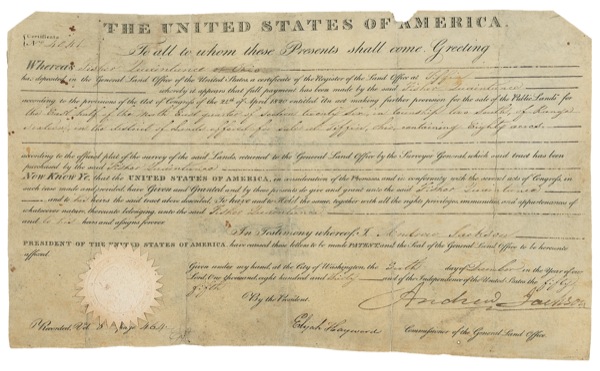 THE UNITED STATES OF AMERICA.
Certificate
No. 4041
To all to whom these Presents shall come, Greeting
Whereas Fisher Quaintance of Ohio
has deposited in the General Land Office of the United States a certificate of the Register of the Land Office at Tiffin
whereby it appears that full payment has been made by the said Fisher Quaintance
according to the provisions of the Act of Congress of the 24th of April 1820 entitled "An act making further provision for the sale of the Public Lands" for
the East half of the North East quarter of Section twenty six, in township two South, of Range
in the district of Lands offered for sale at Tiffin, Ohio, containing Eighty acres.
according to the official plat of the survey of the said Lands, returned to the General Land Office by the Surveyor General, which said tract has been
purchased by the said Fisher Quaintance
Now Know Ye that the UNITED STATES OF AMERICA, in consideration of the Premises and in conformity with the several acts of Congress, in
such case made and provided, have Given and Granted and by these presents do give and grant unto the said Fisher Quaintance
and to his heirs the said tract above described: To have and to Hold the same, together with all the rights, privileges, immunities and appurtenances of
whatsoever nature, thereunto belonging, unto the said Fisher Quaintance
and to his heirs and assigns forever
In Testimony whereof, I, Andrew Jackson
PRESIDENT OF THE UNITED STATES OF AMERICA, have caused these letters to be made PATENT, and the Seal of the General Land Office to be hereunto
affixed.
Given under my hand, at the City of Washington, the day of December in the Year of our
Lord, One thousand, eight hundred and thirty and of the Independence of the United States the fifty
fifth
By the President. Andrew Jackson
Recorded, Vol. Page 464 Elijah Hayward Commissioner of the General Land Office.